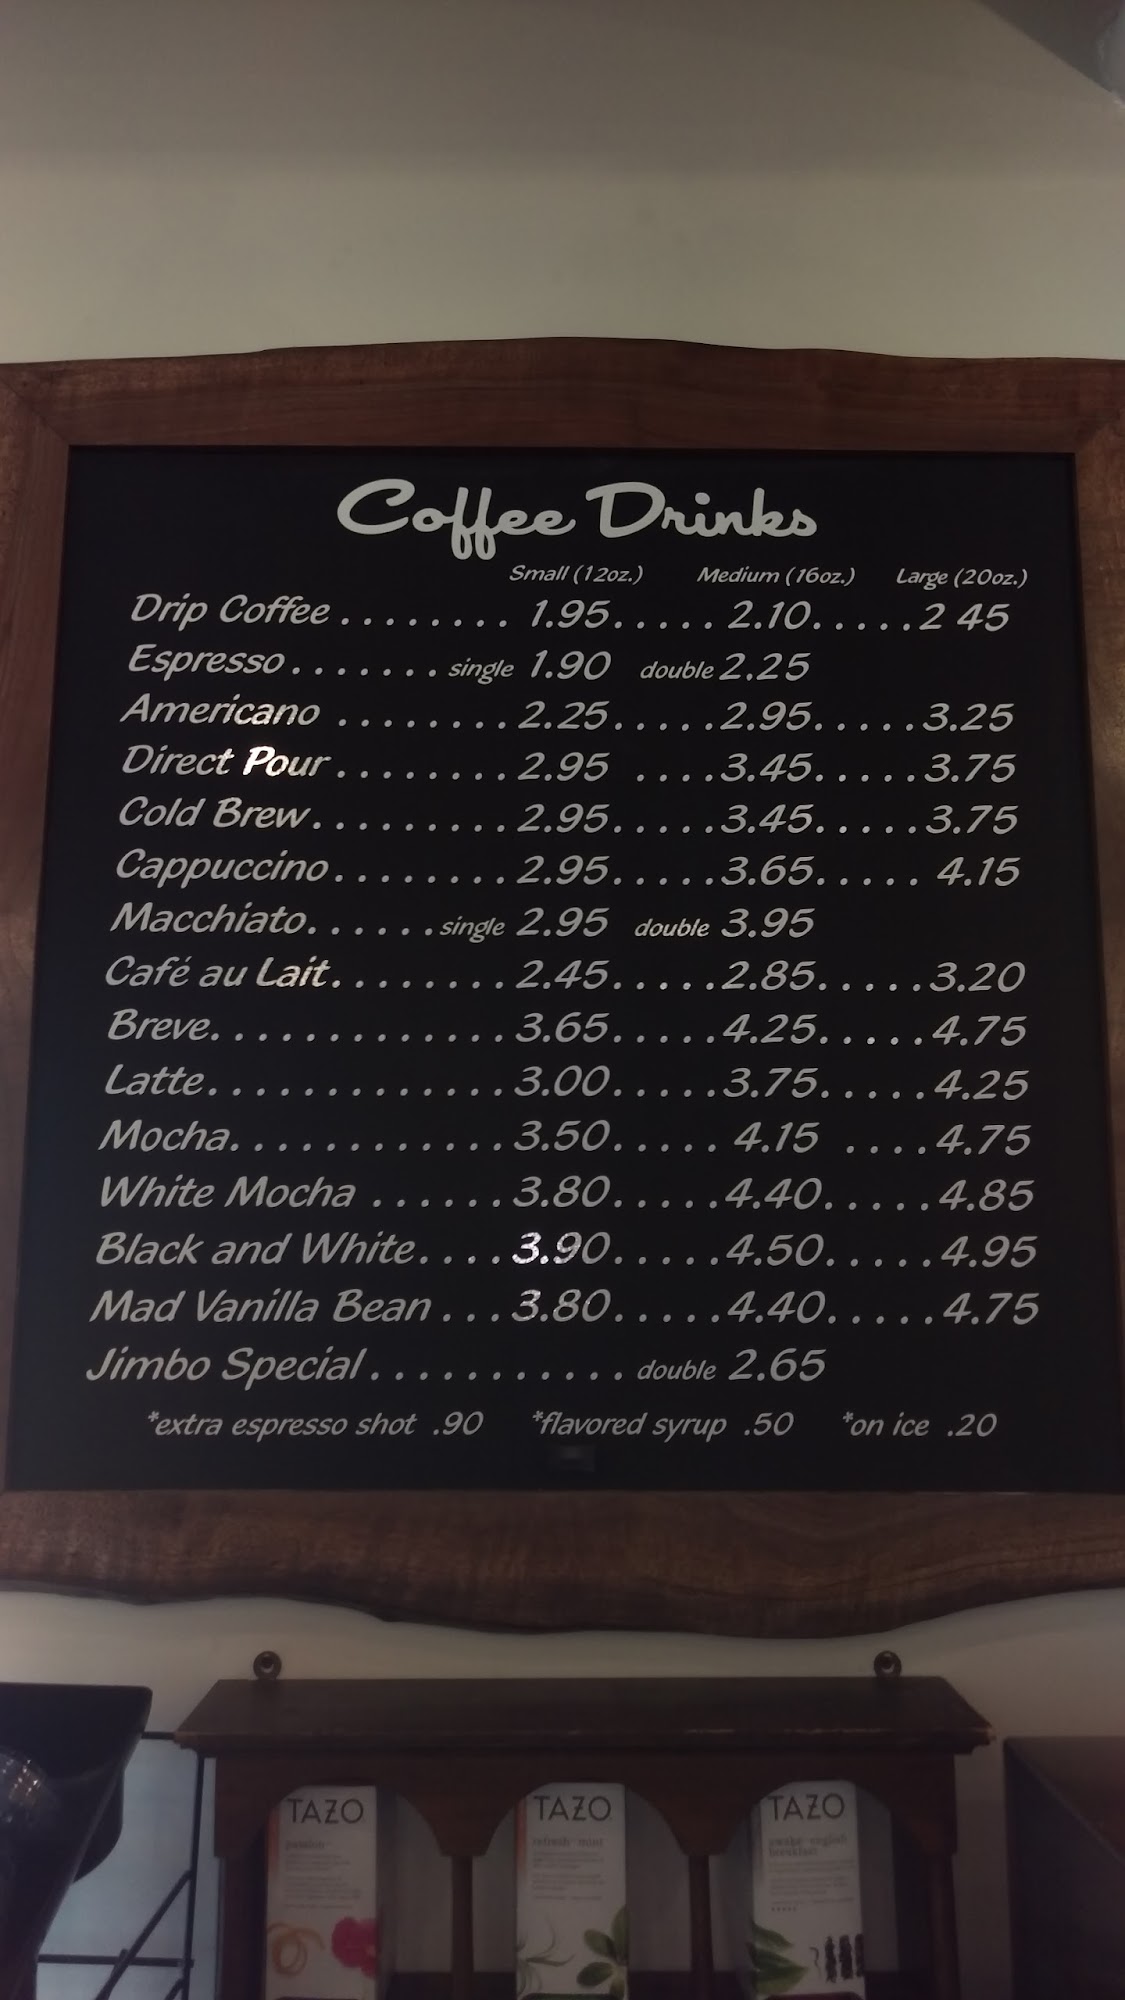 Coffee Drinks
Small (12oz.) Medium (16oz.) Large (20oz.)
Drip Coffee ........ 1.95..... 2.10.....2 45
Espresso....... single 1.90 double 2.25
Americano ........2.25.....2.95.....3.25
Direct Pour........2.95 ....3.45.....3.75
Cold Brew.........2.95.....3.45.....3.75
Cappuccino........2.95.....3.65..... 4.15
Macchiato......single 2.95 double 3.95
Café au Lait........2.45.....2.85.....3.20
Breve.............3.65.....4.25.....4.75
Latte.............3.00.....3.75.....4.25
Mocha............3.50..... 4.15 ....4.75
White Mocha ......3.80.....4.40.....4.85
Black and White....3.90.....4.50.....4.95
Mad Vanilla Bean ...3.80.....4.40.....4.75
Jimbo Special........... double 2.65
*extra espresso shot .90 *flavored syrup .50 *on ice .20
TAZO TAZO TAZO
passion refresh mint awake english
breakfast